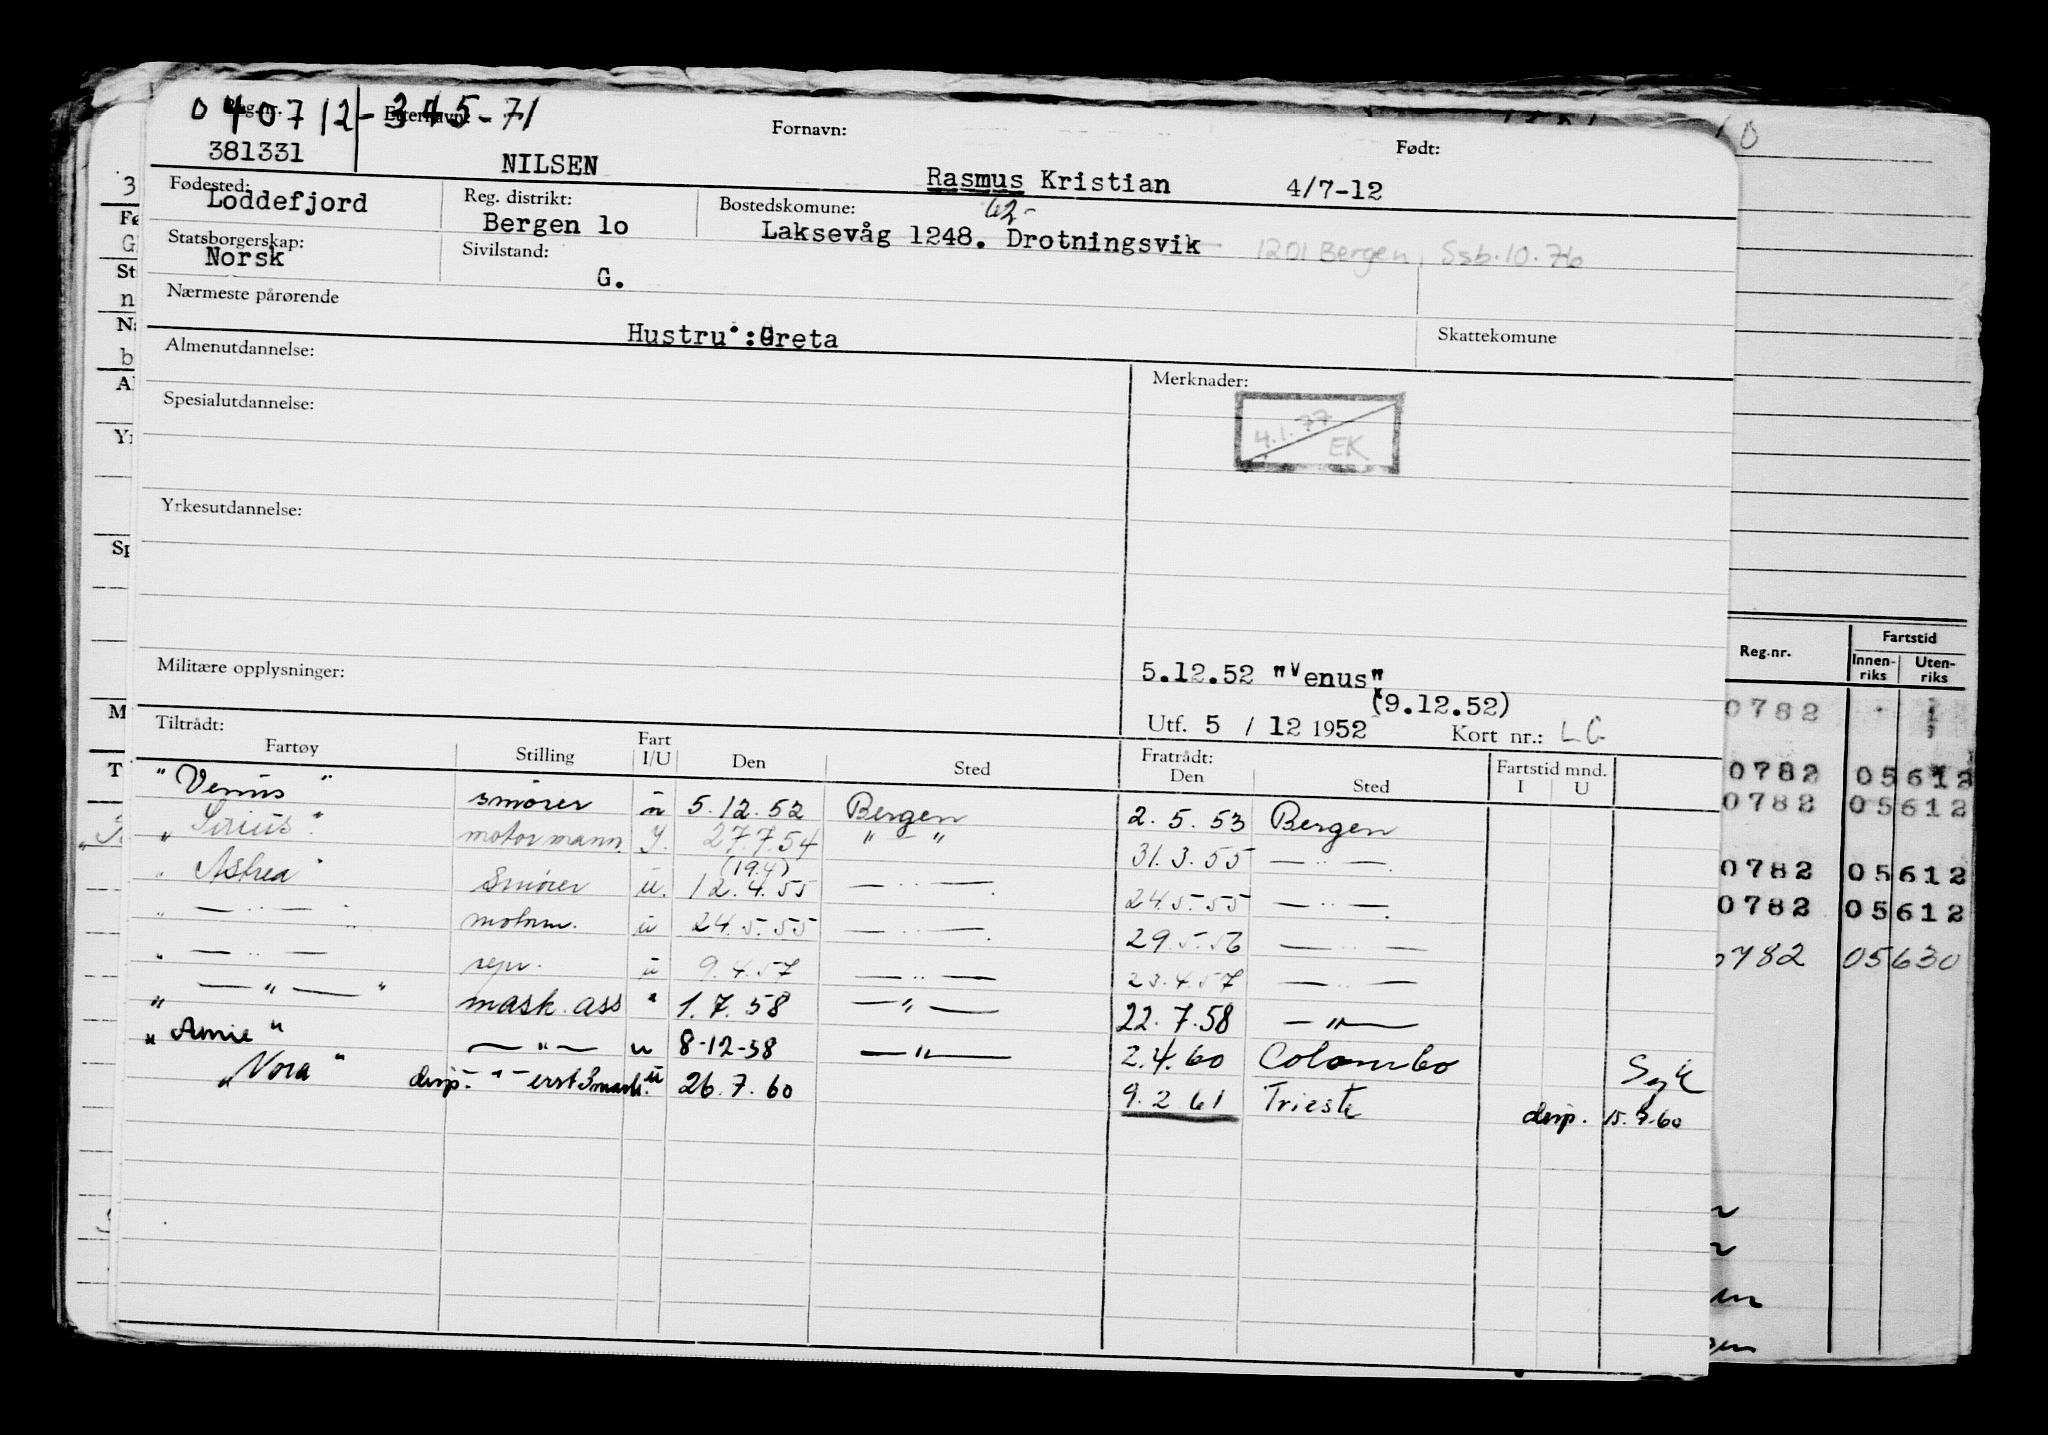 040712-345-71
Reg.nr. Etternavn: Fornavn: Født:
381331 NILSEN Rasmus Kristian 4/7-12
Fødested: Reg. distrikt: Bostedskomune:
Loddefjord Bergen lo Laksevåg 1248. Drotningsvik 1201 Bergen, Ssb.10.76
Statsborgerskap: Sivilstand:
Norsk G.
Nærmeste pårørende
Hustru :Greta
Skattekomune
Almenutdannelse: Merknader:
4.1.77 EK
Spesialutdannelse:
Yrkesutdannelse:
Militære opplysninger: 5.12.52 "Venus"
(9.12.52)
Utf. 5 / 12 1952 Kort nr.: LG
Tiltrådt: Fratrådt:
Fartøy Stilling Fart I/U Den Sted Den Sted Fartstid mnd. I U
"Venus" smører u 5.12.52 Bergen 2.5.53 Bergen
"Sirius" motormann J. 27.7.54 " - " 31.3.55 — " —
(19.4)
" Astrea" Smører u. 12.4.55 — " — 24.5.55 — " —
" — " — " motorm. u 24.5.55 — " — 29.5.56 — " —
" — " — repr. u 9.4.57 — " — 23.4.57 — " —
" — " — " mask.ass " 1.7.58 — " — 22.7.58 — " —
" " — " — u 8-12-58 — " — 2.4.60 Colombo Syk
"Nora" disp. - " - u 26.7.60 9.2 61 Trieste disp. 15.7.60
Reg.nr. Fartstid
Innen-riks Uten-riks
0782
0782 05612
0782 05612
0782 05612
0782 05612
0782 05630